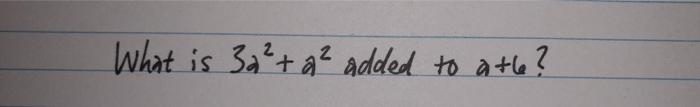 What is 3a²+a² added to a+6?